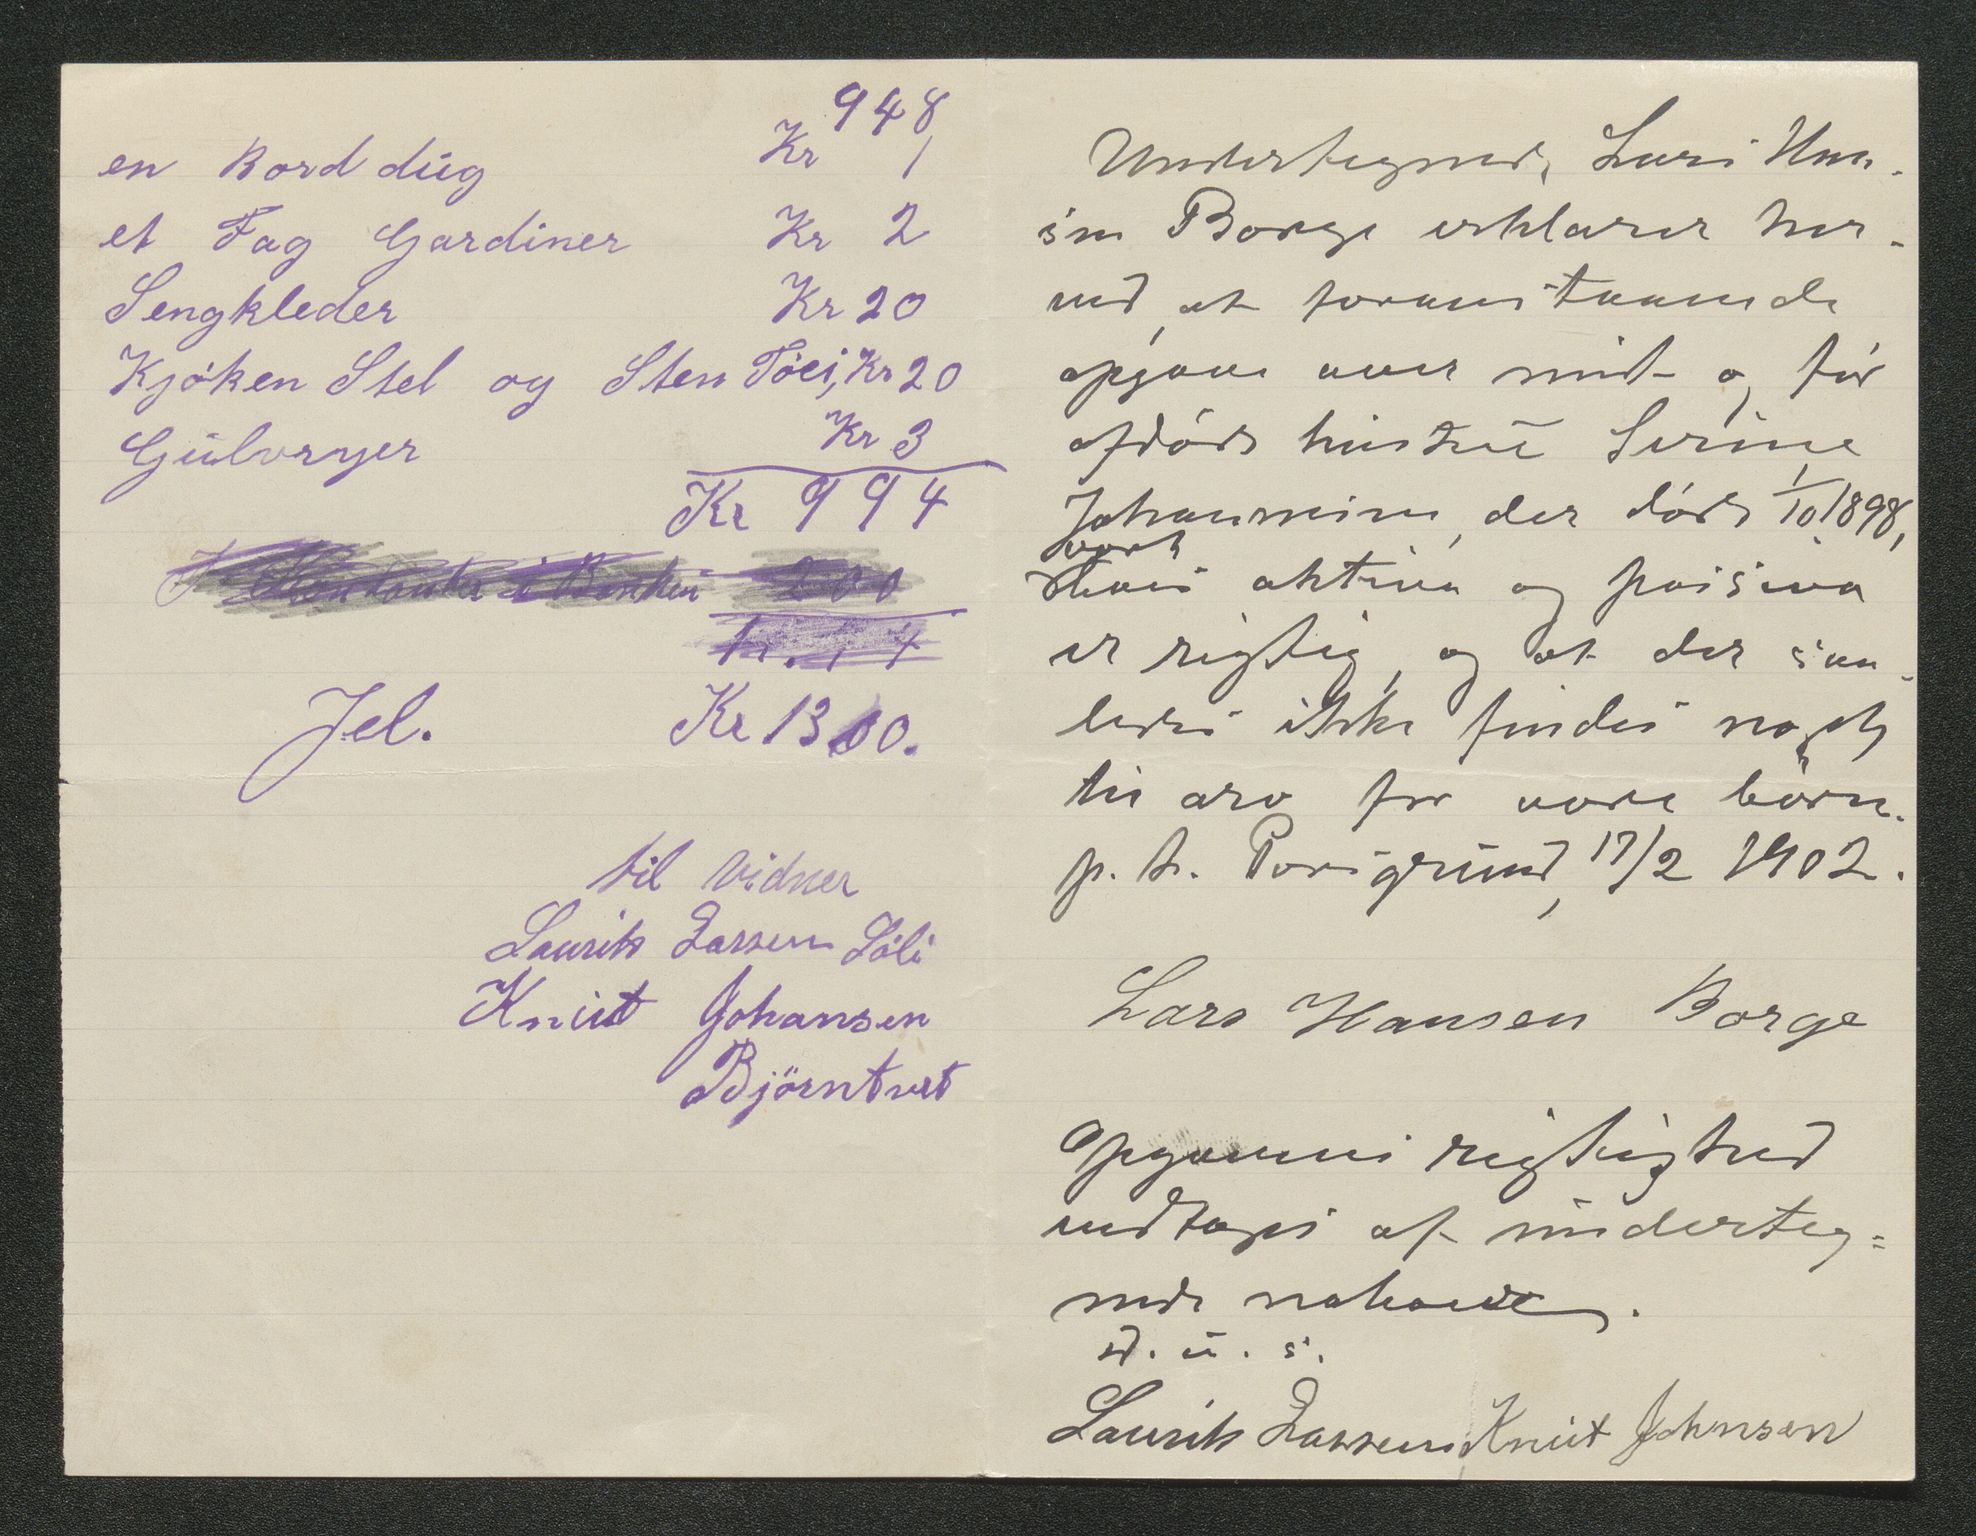 948
en Bord dúg Kr 1
et Fag Gardiner Kr 2
Sengkleder Kr 20
Kjøken Stel og Sten Töei, Kr 20
Gúlvryer Kr 3
Kr 994
i Banken 200
Jel. Kr 1300.
til vidner
Laurits Larsen Löli
Knut Johansen
Björntvet
Undertegnede, Lars Han-
sen Borge erklærer her-
ved, at foranstaaende
opgave over mit og før
afdøde hustrú Serine
Johannesen, der døde 1/10 1898,
vort
boes aktiva og passiva
er rigtig, og at der saa-
ledes ikke findes noget
til arv for vore børn.
p. t. Porsgrund, 17/2 1902.
Lars Hansen Borge
Opgavens rigtighed
vedtages af únderteg=
nede naboer.
D. ú. s.
Laurits Larsen Knut Johnsen